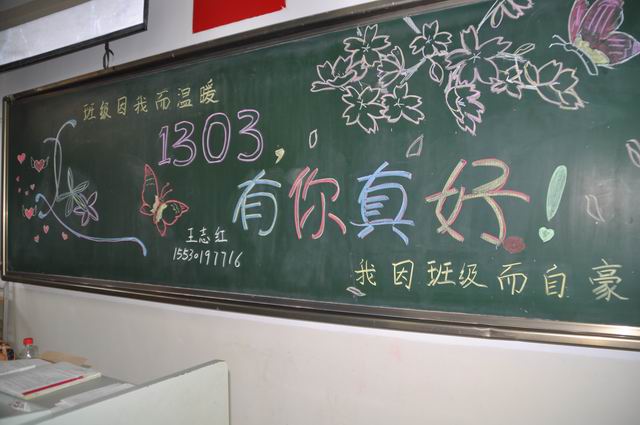 班级因我而温暖
1303,
有你真好!
王志红
15530197716
我因班级而自豪